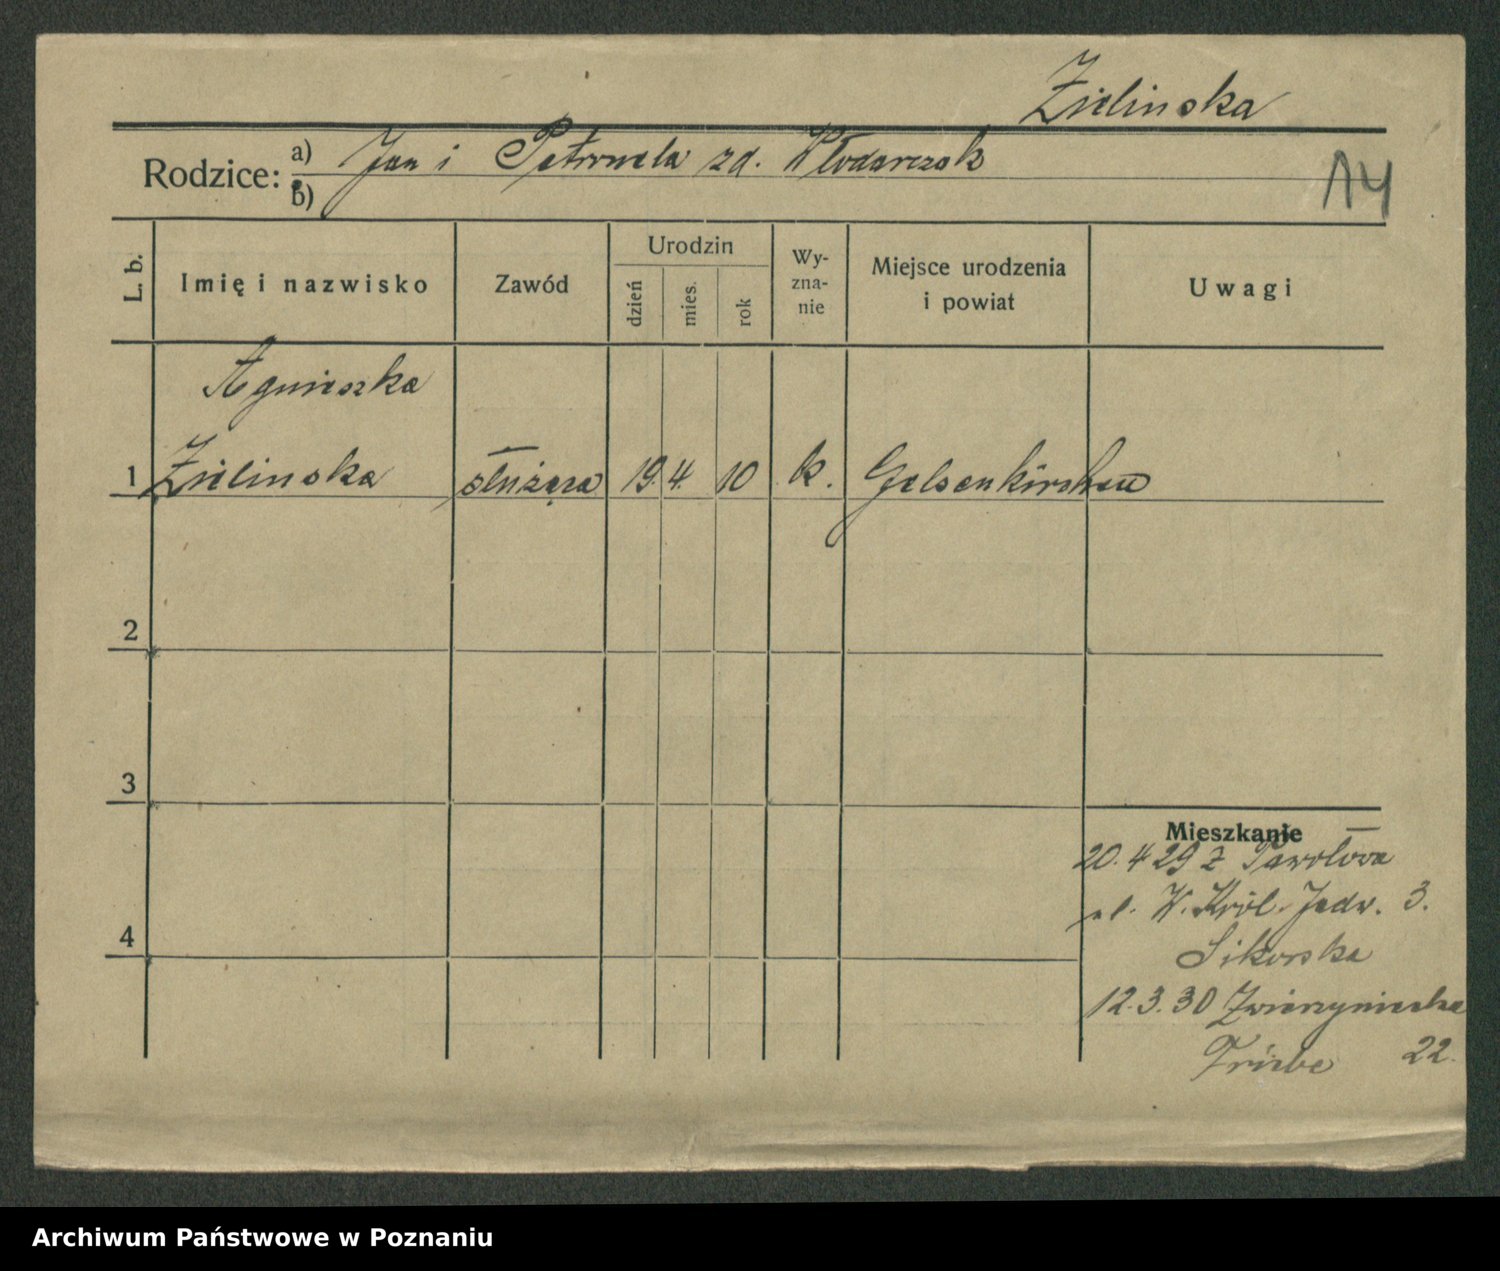 Zielinska
Rodzice: a) Jan i Petronela zd. Włodarczak
b)
14
L. b.
Imię i nazwisko
Zawód
Urodzin
dzień
mies.
rok
Wy-
zna-
nie
Miejsce urodzenia
i powiat
Uwagi
Agnieszka
1 Zielinska służąca 19. 4. 10 k. Gelsenkirchen
2
3
4
Mieszkanie
20.4 29 z
ul. W. Król. Jadw. 3.
Sikorska
12.3.30 Zwierzyniecka
22.